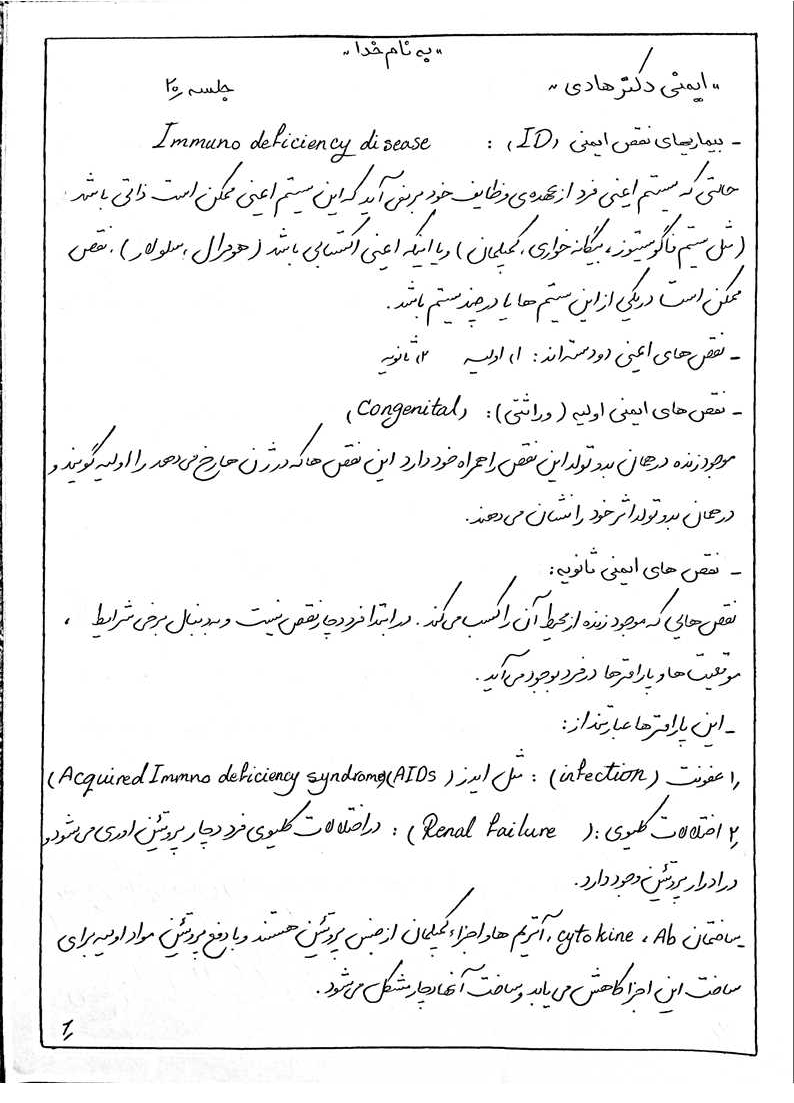 "به نام خدا"
"ایمنی دکتر هادی" جلسه ۲۰
- بیماریهای نقص ایمنی (ID) : Immuno deficiency disease
حالتی که سیستم ایمنی فرد از عهده‌ی وظایف خود برنمی آید که این سیستم ایمنی ممکن است ذاتی باشد
(مثل سیستم فاگوسیتوز، بیگانه خواری، کمپلمان) و یا اینکه ایمنی اکتسابی باشد (هومرال، سلولار). نقص
ممکن است در یکی از این سیستم ها یا در چند سیستم باشد.
- نقص های ایمنی دو دسته اند: ۱) اولیه ۲) ثانویه
- نقص های ایمنی اولیه (وراثتی): (Congenital)
موجود زنده در همان بدو تولد این نقص را همراه خود دارد این نقص ها که در ژن ها رخ می دهد را اولیه گویند و
در همان بدو تولد اثر خود را نشان می دهند.
- نقص های ایمنی ثانویه:
نقص هایی که موجود زنده از محیط آن را کسب می کند. در ابتدا فرد دچار نقص نیست و به دنبال برخی شرایط ،
موقعیت ها و پارامترها در فرد بوجود می آید.
- این پارامترها عبارتند از:
۱) عفونت (infection) : مثل ایدز (Acquired Immno deficiency syndrome)(AIDs)
۲) اختلالات کلیوی : (Renal failure) : در اختلالات کلیوی فرد دچار پروتئین اوری می شود و
در ادرار پروتئین وجود دارد.
- ساختمان Ab ، cytokine ، آنزیم ها و اجزاء کمپلمان از جنس پروتئین هستند و با دفع پروتئین مواد اولیه برای
ساخت این اجزا کاهش می یابد و ساخت آنها دچار مشکل می شود.
۱